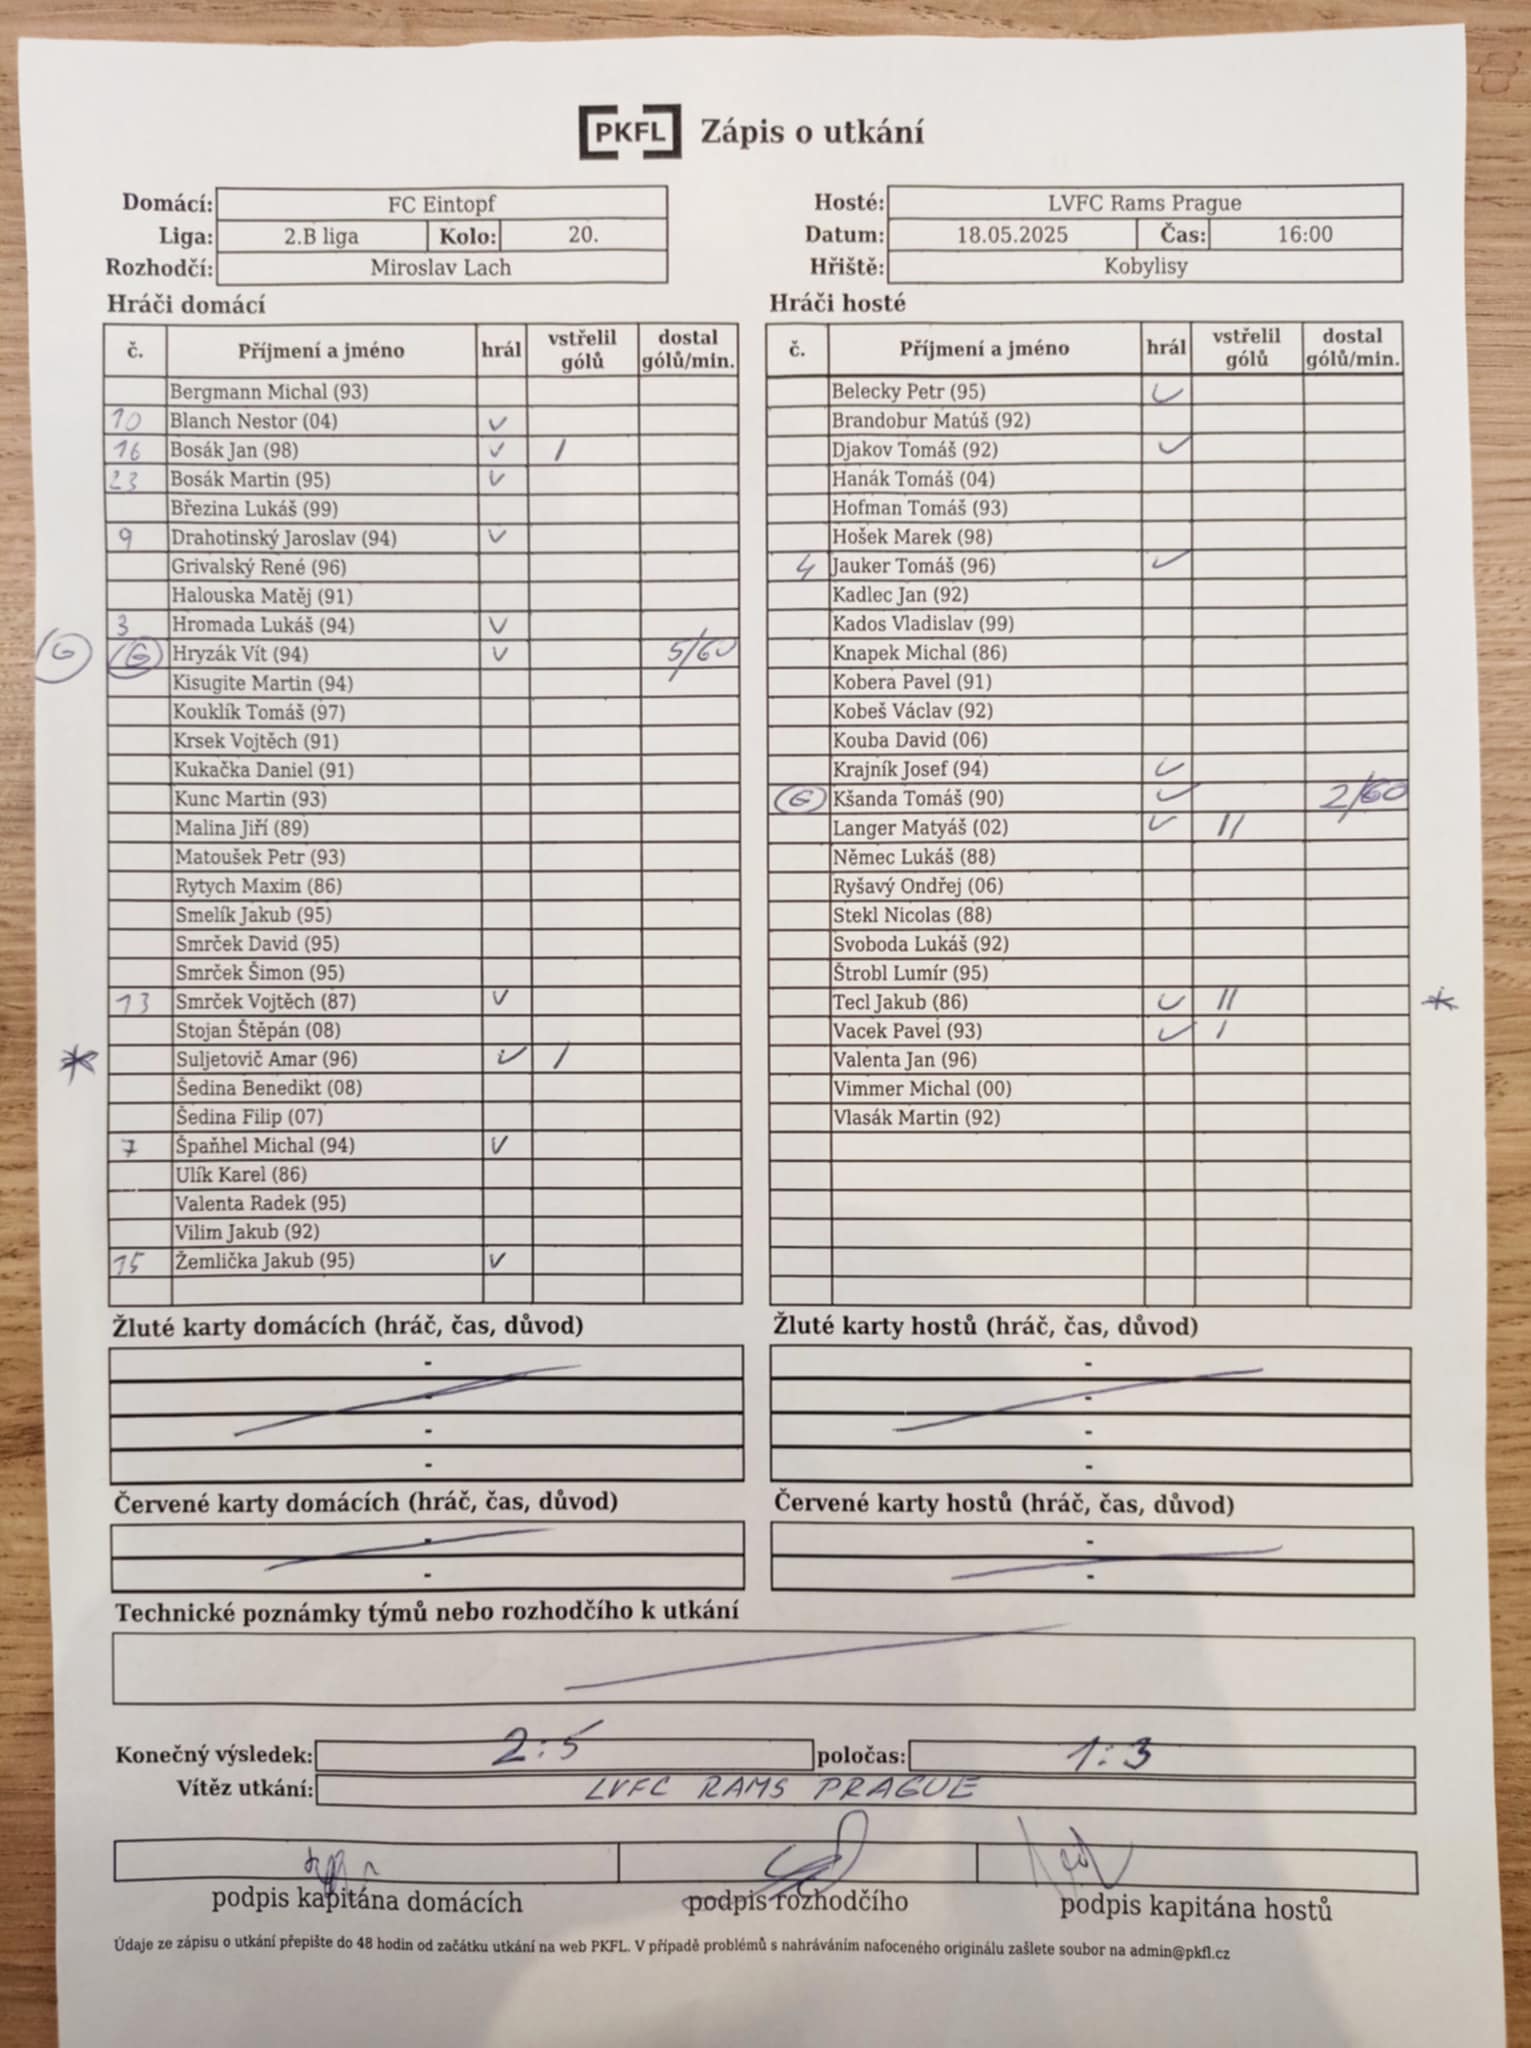 PKFL Zápis o utkání
Domácí: FC Eintopf
Liga: 2.B liga Kolo: 20.
Rozhodčí: Miroslav Lach
Hosté: LVFC Rams Prague
Datum: 18.05.2025 Čas: 16:00
Hřiště: Kobylisy
Hráči domácí
č. Příjmení a jméno hrál vstřelil gólů dostal gólů/min.
Bergmann Michal (93)
10 Blanch Nestor (04) ✓
16 Bosák Jan (98) ✓ I
23 Bosák Martin (95) ✓
Březina Lukáš (99)
9 Drahotinský Jaroslav (94) ✓
Grivalský René (96)
Halouska Matěj (91)
3 Hromada Lukáš (94) ✓
G G Hryzák Vít (94) ✓ 5/60
Kisugite Martin (94)
Kouklík Tomáš (97)
Krsek Vojtěch (91)
Kukačka Daniel (91)
Kunc Martin (93)
Malina Jiří (89)
Matoušek Petr (93)
Rytych Maxim (86)
Smelík Jakub (95)
Smrček David (95)
Smrček Šimon (95)
13 Smrček Vojtěch (87) ✓
Stojan Štěpán (08)
* Suljetovič Amar (96) ✓ I
Šedina Benedikt (08)
Šedina Filip (07)
7 Špaňhel Michal (94) ✓
Ulík Karel (86)
Valenta Radek (95)
Vilim Jakub (92)
15 Žemlička Jakub (95) ✓
Hráči hosté
č. Příjmení a jméno hrál vstřelil gólů dostal gólů/min.
Belecky Petr (95) ✓
Brandobur Matúš (92)
Djakov Tomáš (92) ✓
Hanák Tomáš (04)
Hofman Tomáš (93)
Hošek Marek (98)
4 Jauker Tomáš (96) ✓
Kadlec Jan (92)
Kados Vladislav (99)
Knapek Michal (86)
Kobera Pavel (91)
Kobeš Václav (92)
Kouba David (06)
Krajník Josef (94) ✓
G Kšanda Tomáš (90) ✓ 2/60
Langer Matyáš (02) ✓ II
Němec Lukáš (88)
Ryšavý Ondřej (06)
Stekl Nicolas (88)
Svoboda Lukáš (92)
Štrobl Lumír (95)
Tecl Jakub (86) ✓ II *
Vacek Pavel (93) ✓ I
Valenta Jan (96)
Vimmer Michal (00)
Vlasák Martin (92)
Žluté karty domácích (hráč, čas, důvod)
-
-
-
-
Žluté karty hostů (hráč, čas, důvod)
-
-
-
-
Červené karty domácích (hráč, čas, důvod)
-
-
Červené karty hostů (hráč, čas, důvod)
-
-
Technické poznámky týmů nebo rozhodčího k utkání
Konečný výsledek: 2:5 poločas: 1:3
Vítěz utkání: LVFC RAMS PRAGUE
podpis kapitána domácích podpis rozhodčího podpis kapitána hostů
Údaje ze zápisu o utkání přepište do 48 hodin od začátku utkání na web PKFL. V případě problémů s nahráváním nafoceného originálu zašlete soubor na admin@pkfl.cz